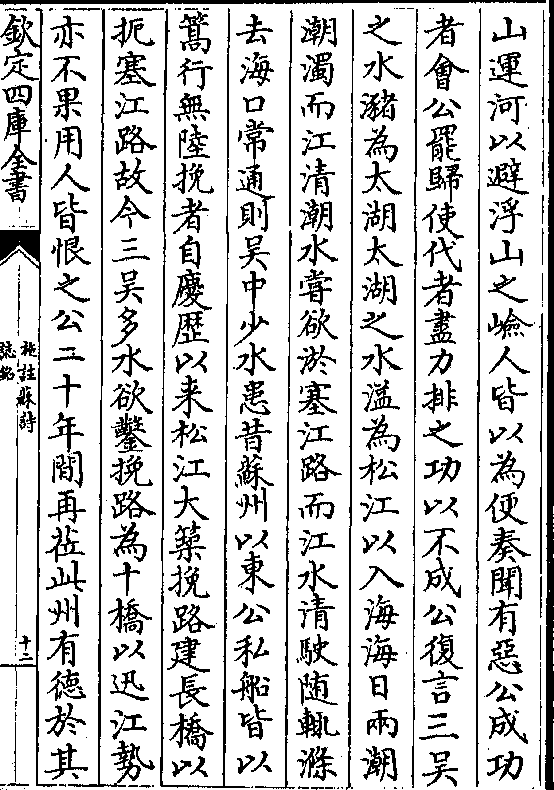 山運河以避浮山之嶮人皆以為便奏聞有惡公成功
者會公罷歸使代者盡力排之功以不成公復言三吳
之水瀦為太湖太湖之水溢為松江以入海海日兩潮
潮濁而江清潮水嘗欲淤塞江路而江水清駛随軌滌
去海口常通則吳中少水患昔蘇州以東公私船皆以
篙行無陸挽者自慶歴以来松江大築挽路建長橋以
扼塞江路故今三吳多水欲鑿挽路為十橋以迅江勢
亦不果用人皆恨之公二十年間再莅此州有德於其
欽定四庫全書
施註蘇詩
誌銘
十二